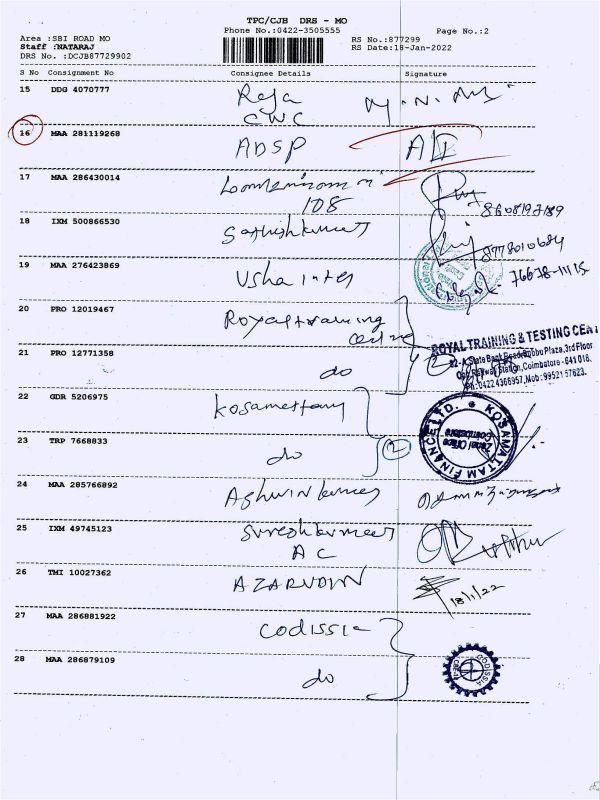 TPC/CJB DRS - MO
Phone No.:0422-3505555
Page No.:2
Area :SBI ROAD MO
Staff :NATARAJ
DRS No. :DCJB87729902
RS No.:877299
RS Date:18-Jan-2022
S No Consignment No Consignee Details Signature
15 DDG 4070777 Raja
CWC
16 MAA 281119268 ADSP
17 MAA 286430014
108
8608197189
18 IXM 500866530 Sathishkumar
8778010684
19 MAA 276423869 Usha inter
76678-11115
20 PRO 12019467 Royal training
centre
ROYAL TRAINING & TESTING CENT
State Bank Road, Plaza, 3rd Floor
Opp. Railway Station, Coimbatore - 641 018.
Ph: 0422 4366957, Mob: 99521 57623.
21 PRO 12771358 do
2
22 GDR 5206975
KOSAMATTAM FINANCE LTD.
Zonal Office
Coimbatore
23 TRP 7668833 do
2
24 MAA 285766892 Ashwin kumar
25 IXM 49745123 Sureshkumar
AC
26 TMI 10027362 AZARUDIN
18/1/22
27 MAA 286881922 Codissia
28 MAA 286879109 do
CODISSIA